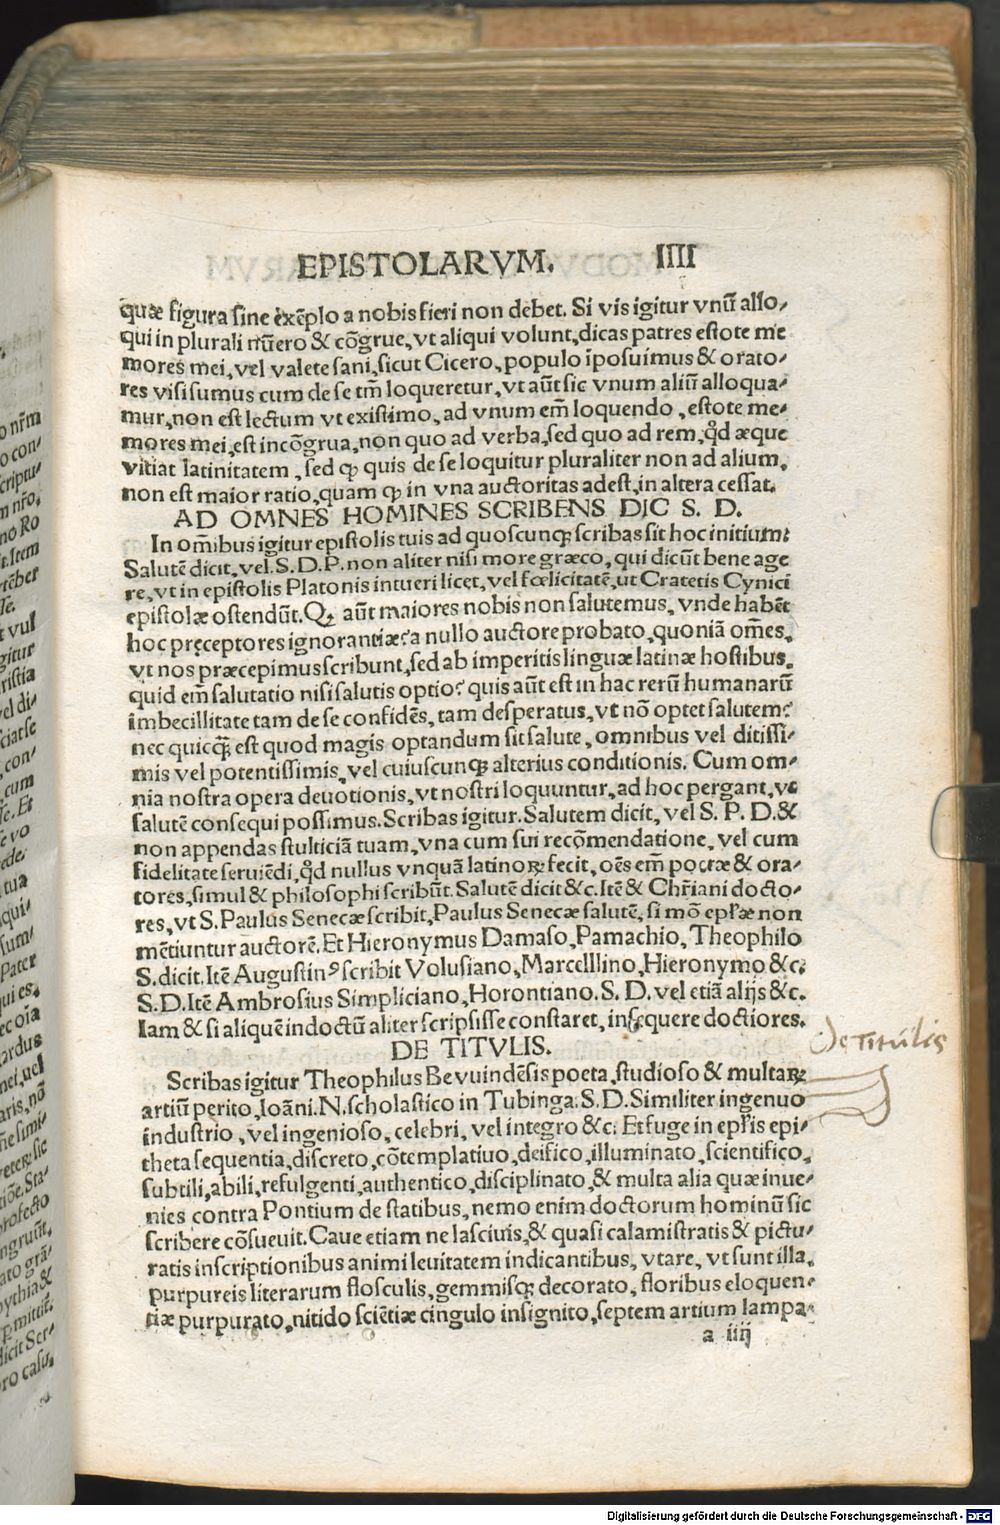 EPISTOLARVM. IIII
quæ figura sine exẽplo a nobis fieri non debet. Si vis igitur vnũ allo/
qui in plurali nũero & cõgrue, vt aliqui volunt, dicas patres estote me
mores mei, vel valete sani, sicut Cicero, populo īposuimus & orato/
res visi sumus cum de se tm̃ loqueretur, vt aũt sic vnum aliũ alloqua/
mur, non est lectum vt existimo, ad vnum em̃ loquendo, estote me/
mores mei, est incõgrua, non quo ad verba, sed quo ad rem, qd̓ æque
vitiat latinitatem, sed ꝙ quis de se loquitur pluraliter non ad alium,
non est maior ratio, quam ꝙ in vna auctoritas adest, in altera cessat.
AD OMNES HOMINES SCRIBENS DIC S. D.
In om̃ibus igitur epistolis tuis ad quoscunqꝫ scribas sit hoc initium:
Salutẽ dicit, vel. S. D. P. non aliter nisi more græco, qui dicũt bene age
re, vt in epistolis Platonis intueri licet, vel fœlicitatẽ, ut Cratetis Cynici
epistolæ ostendũt. Qꝫ aũt maiores nobis non salutemus, vnde habẽt
hoc pręceptores ignorantiæ? a nullo auctore probato, quoniã om̃es,
vt nos præcepimus scribunt, sed ab imperitis linguæ latinæ hostibus,
quid em̃ salutatio nisi salutis optio? quis aũt est in hac rerũ humanarũ
imbecillitate tam de se confidẽs, tam desperatus, vt nõ optet salutem?
nec quicq̃ꝫ est quod magis optandum sit salute, omnibus vel ditissi/
mis vel potentissimis, vel cuiuscunqꝫ alterius conditionis. Cum om/
nia nostra opera deuotionis, vt nostri loquuntur, ad hoc pergant, vt
salutẽ consequi possimus. Scribas igitur. Salutem dicit, vel S. P. D. &
non appendas stulticiã tuam, vna cum sui recõmendatione, vel cum
fidelitate seruiẽdi, qd̓ nullus vnquã latinoꝝ fecit, oẽs em̃ poetæ & ora/
tores, simul & philosophi scribũt. Salutẽ dicit &c. Itẽ & Chr̃iani docto/
res, vt S. Paulus Senecæ scribit, Paulus Senecæ salutẽ, si mõ epl̃æ non
mẽtiuntur auctorẽ. Et Hieronymus Damaso, Pamachio, Theophilo
S. dicit. Itẽ Augustinꝰ scribit Volusiano, Marcelllino, Hieronymo &c.
S. D. Itẽ Ambrosius Simpliciano, Horontiano. S. D. vel etiã alijs &c.
Iam & si aliquẽ indoctũ aliter scripsisse constaret, insequere doctiores.
DE TITVLIS.
De Titulis
Scribas igitur Theophilus Bevuindẽsis poeta, studioso & multaꝝ
artiũ perito, Ioãni. N. scholastico in Tubinga: S. D. Similiter ingenuo
industrio, vel ingenioso, celebri, vel integro &c: Et fuge in epl̃is epi/
theta sequentia, discreto, cõtemplatiuo, deifico, illuminato, scientifico,
subtili, abili, refulgenti, authentico, disciplinato, & multa alia quæ inue/
nies contra Pontium de statibus, nemo enim doctorum hominũ sic
scribere cõsueuit. Caue etiam ne lasciuis, & quasi calamistratis & pictu/
ratis inscriptionibus animi leuitatem indicantibus, vtare, vt sunt illa,
purpureis literarum flosculis, gemmisqꝫ decorato, floribus eloquen/
tiæ purpurato, nitido sciẽtiæ cingulo insignito, septem artium lampa/
a iiij
Digitalisierung gefördert durch die Deutsche Forschungsgemeinschaft - DFG